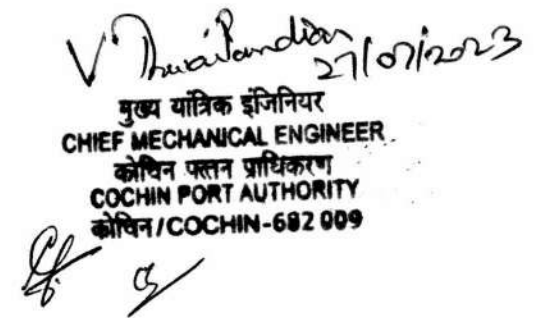 V. Thurai Pandian
27/07/2023
मुख्य यांत्रिक इंजिनियर
CHIEF MECHANICAL ENGINEER
कोचिन पत्तन प्राधिकरण
COCHIN PORT AUTHORITY
कोचिन/COCHIN-682 009